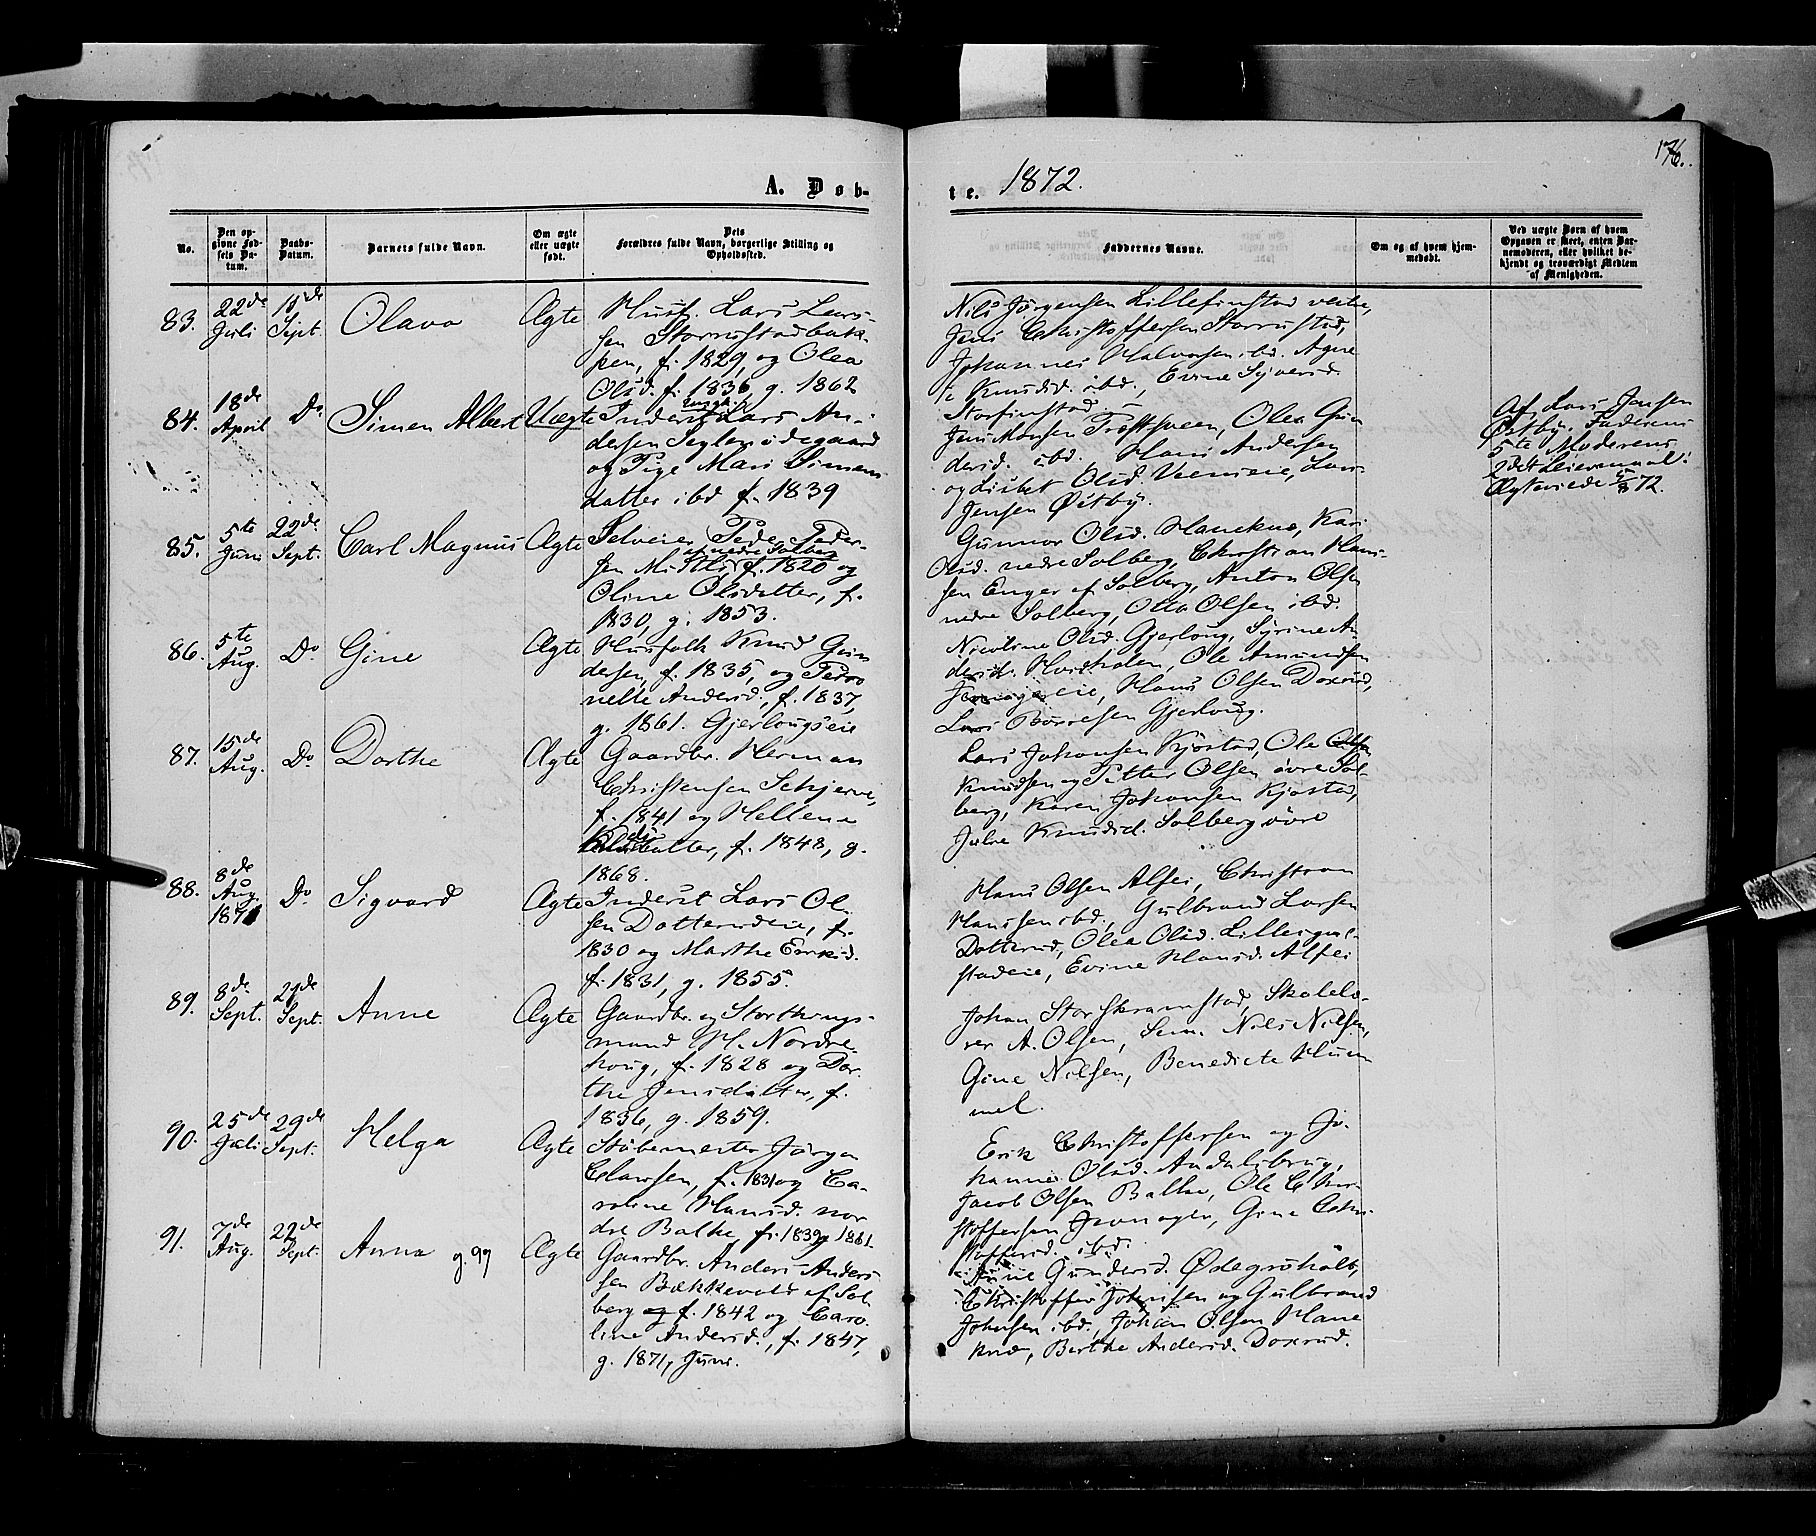 176.
A. Døb-
te. 1872.
No.
Den op-
givne Fød-
sels Da-
tum.
Daabs-
Datum.
Barnets fulde Navn.
Om ægte
eller uægte
født.
Dets
Forældres fulde Navn, borgerlige Stilling og
Opholdssted.
Faddernes Navne.
Om og af hvem hjem-
medøbt.
Ved uægte Børn af hvem
Opgaven er skeet, enten Bar-
nemoderen, eller hvilket be-
kjendt og troværdigt Medlem
af Menigheden.
83.
22de
Juli
Sept.
Olava
Ægte
Husf. Lars Lars-
sen Storrustadbak-
ken, f. 1829, og Olea
Olsd. f. 1836 g. 1862
Nils Jørgensen Lillefinstad vestre,
Jens Christoffersen Storrustad,
Johannes Halvorsen ibd. Agne
Knudsd. ibd., Evine Syversd.
Storfinstad
84.
18de
April
Do
Simen Albert
Uægte
Ungk.
Inderst Lars An-
dersen Seglemødegaard
og Pige Mari Simens-
datter ibd f. 1839
Jens Monsen Trøstsveen, Olea Gun-
dersd. ibd. Hans Andersen
og Lisbet Olsd. Lars
Jensen Østby.
Af Lars Jensen
Østby. Faderens
5te Moderens
2det Leiermaal.
Ægteviede 72.
85.
5te
Juni
22de
Sept.
Carl Magnus
Ægte
Selveier Peder Peder-
af nedre Solberg
sen f. 1820 og
Oline Olsdatter, f.
1830, g. 1853.
Gunnor Olsd. Haneknæ, Kari
Olsd. nedre Solberg, Christian Han-
sen Enger af Solberg, Anton Olsen
nedre Solberg, Otto Olsen ibd.
86.
5te
Aug.
Do
Gine
Ægte
Husfolk Knud Gun-
dersen, f. 1835, og Petro
nelle Andersd., f. 1837,
g. 1861. Gjerlougseie
Nicoline Olsd. Gjerloug, Syrine An
dersd. Ole Amundsen
Hans Olsen Doxrud,
Lars Børresen Gjerloug.
87.
15de
Aug.
Do
Dorthe
Ægte
Gaardbr. Herman
Christensen Schjerve,
f. 1841 og Hellene
datter, f. 1848, g.
1868.
Lars Johansen Kjøstad, Ole Olsen
Knudsen og Petter Olsen øvre Sol-
berg, Karen Johansen Kjøstad,
Julie Knudsd. Solberg øvre
88.
8de
Aug.
1871
Do
Sigvard
Ægte
Inderst Lars Ol-
sen Dotterudeie, f.
1830 og Marthe Eriksd.
f. 1831, g. 1855.
Hans Olsen Alfei, Christian
Hanssen ibd., Gulbrand Larsen
Dotterud, Olea Olsd.
stadeie, Evine Hansd. Alfei
89.
8de
Sept.
29de
Sept.
Anne
Ægte
Gaardbr. og Storthings-
mand H. Nordre-
houg, f. 1828 og Dor-
the Jensdatter, f.
1836, g. 1859.
Johan Storskramstad, Skolelæ-
rer A. Olsen, Sem. Nils Nilsen,
Gine Nilsen, Benedicte Hum
mel.
90.
25de
Juli
29de
Sept.
Helga
Ægte
Støbemester Jørgen
Clausen, f. 1831 og Ca-
roline Hansd. nor
dre Balke, f. 1839 g. 1861.
Erik Christoffersen og Jo-
hanne Olsd. Andalsbrug,
Jacob Olsen Balke, Ole Chri-
stoffersen Gine Chri-
stoffersd. ibd.
91.
7de
Aug.
22de
Sept.
Anna g. 99
Ægte
Gaardbr. Anders Anders-
sen Bækkevold af Sol
berg og f. 1842 og Caro-
line Andersd., f. 1847,
g. 1871, Juni.
Anne Gundersd.
Christoffer Johnsen og Gulbrand
Johnsen ibd. Johan Olsen Hane
knæ, Berthe Andersd. Doxrud.